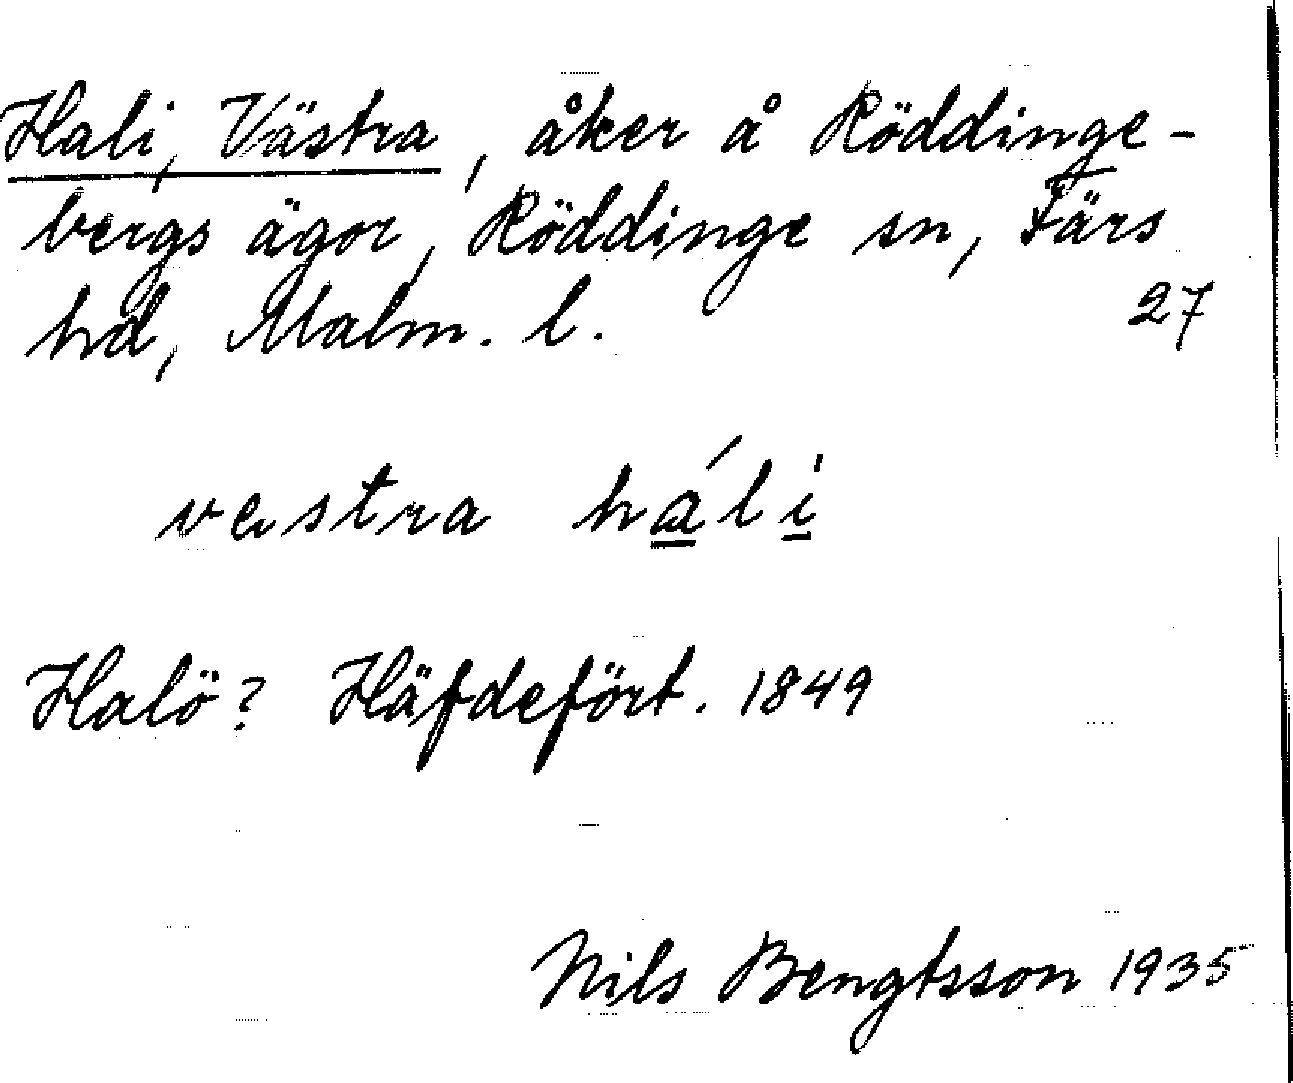 Hali, Västra, åker å Röddinge-
bergs ägor, Röddinge sn, Färs
hd, Malm. l. 27
vestra háli
Halö? Häfdefört. 1849
Nils Bengtsson 1935